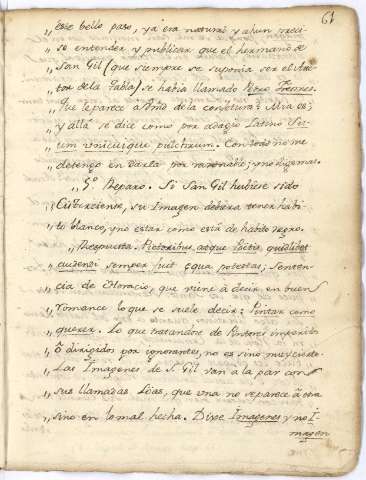 61
„ este bello paso, yà era natural y ahun preci-
„ so entender y publicar que el hermano de
„ San Gil (que siempre se suponìa ser el Au-
„ tor de la Tabla) se habìa llamado Pedro
„ Que le parece à Vmd de la conjetura? Mia es;
„ y allà se dice como por adagio Latino Su-
„ um unicuique pulchrum. Con todo no me
„ detengo en darla por razonable; y no digo mas.
„ 5º Reparo. Si San Gil hubiese sido
„ Cisterciense, su Imagen debiera tener habi-
„ to blanco, y no estar como està de habito negro.
„ Respuesta. Pictoribus, atque Poetis, quidlibet
„ audendi semper fuit equa potestas; Senten-
„ cia de Horacio, que viene à decir en buen
„ romance lo que se suele decir: Pintar como
„ querer. Lo que tratandose de Pintores imperitos
„ ò dirigidos por ignorantes, no es sino muy cierto.
„ Las Imagenes de S. Gil van a la par con
„ sus llamadas que una no se parece à otra
„ sino en lo mal hecha. Dixe Imagenes y no I-
magen